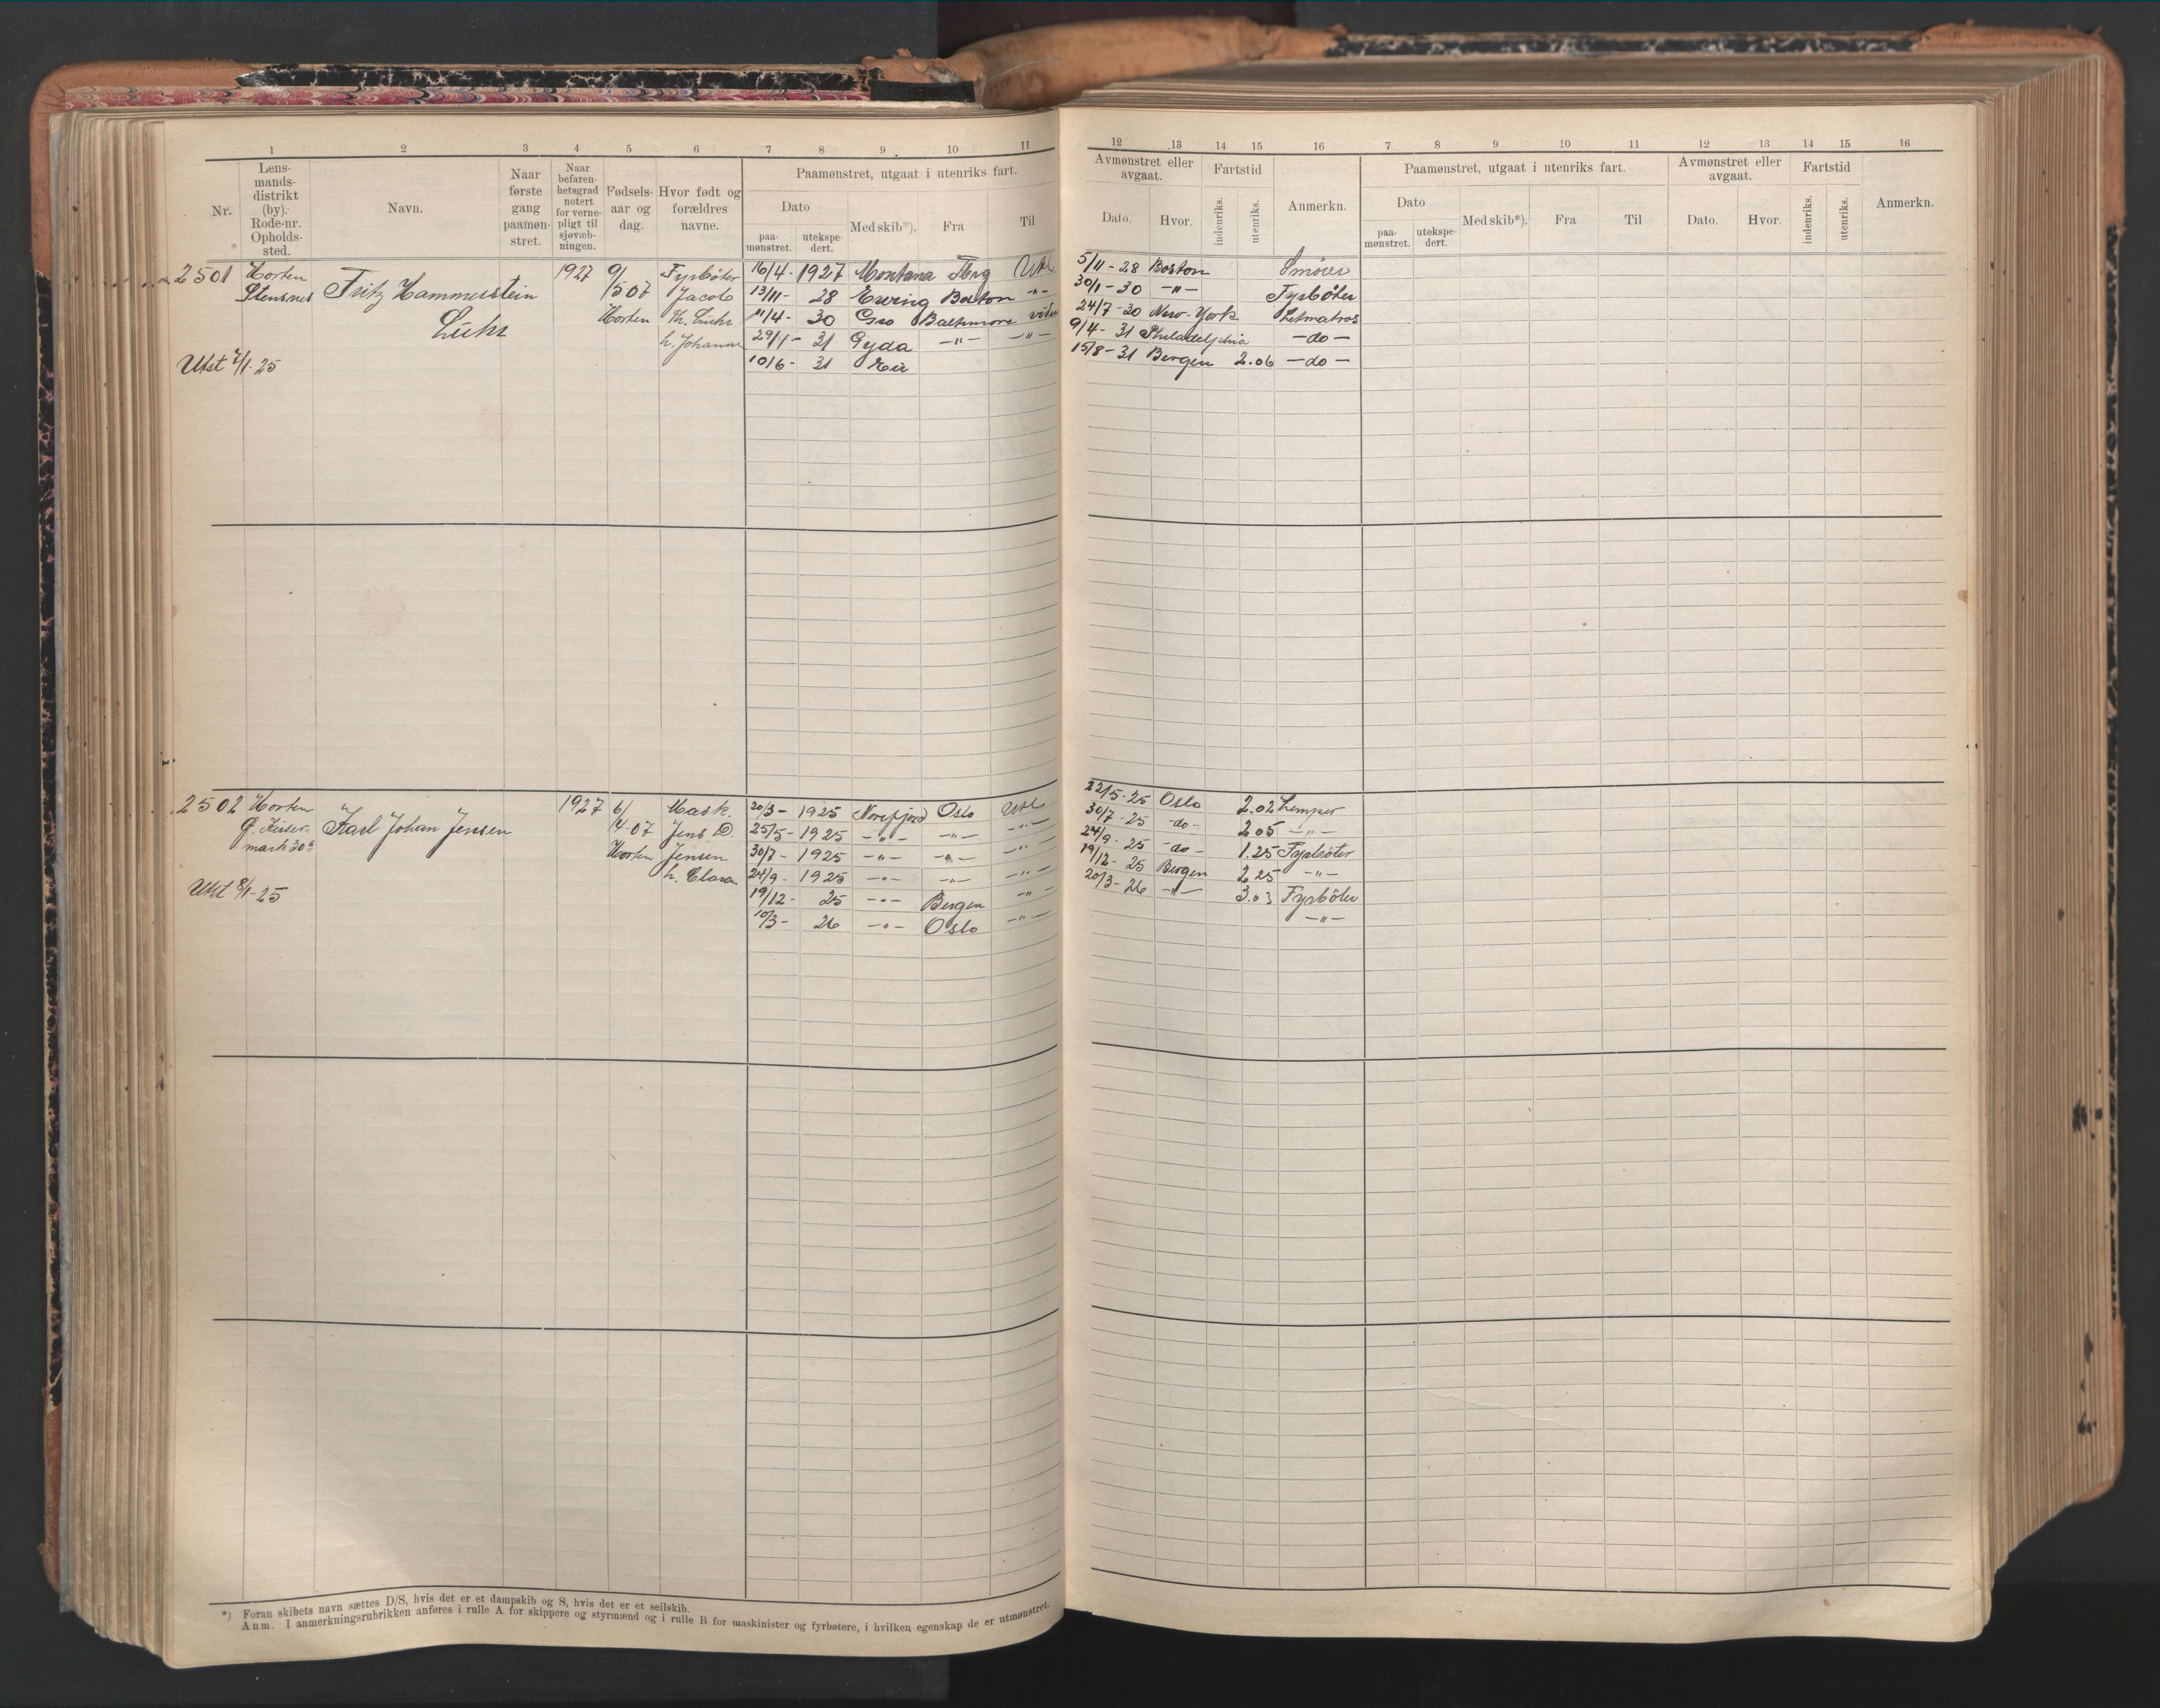 1 2 3 4 5 6 7 8 9 10 11
Nr.
Lens-
mands-
distrikt
(by).
Rode-nr.
Opholds-
sted.
Navn.
Naar
første
gang
paamøn-
stret.
Naar
befaren-
hetsgrad
notert
for verne-
pligt til
sjøvæb-
ningen.
Fødsels-
aar og
dag.
Hvor født og
forældres
navne.
Paamønstret, utgaat i utenriks fart.
Dato
paa-
mønstret.
utekspe-
dert.
Med skib*).
Fra
Til
2501 Horten Fritz Hammerstein 1927 9/ Fyrbøter 16/4- 1927 Montana Tbrg Utl
Stensnes Lühr /5 07 Jacob 13/11- 28 Ewing Boston -"-
Horten Th. Lühr 11/4- 30 Gro Baltimore
h. Johanne 29/1- 31 Gyda -"- -"-
Utst 7/1-25 10/6- 31
2502 Horten Karl Johan Jensen 1927 6/ Mask. 20/3- 1925 Norefjord Oslo Utl
mark 30 /4-07 Jens 25/5- 1925 -"- -"- -"-
Horten Jensen 30/7- 1925 -"- -"- -"-
h. Clara 24/9- 1925 -"- -"- -"-
Utst 8/1-25 19/12- 25 -"- Bergen -"-
10/3- 26 -"- Oslo -"-
*) Foran skibets navn sættes D/S, hvis det er et dampskib og S, hvis det er et seilskib.
Anm. I anmerkningsrubrikken anføres i rulle A for skippere og styrmænd og i rulle B for maskinister og fyrbøtere, i hvilken egenskap de er utmønstret.
12 13 14 15 16 7 8 9 10 11 12 13 14 15 16
Avmønstret eller
avgaat.
Dato.
Hvor.
Fartstid
indenriks.
utenriks.
Anmerkn.
Paamønstret, utgaat i utenriks fart.
Dato
paa-
mønstret.
utekspe-
dert.
Med skib*).
Fra
Til
Avmønstret eller
avgaat.
Dato.
Hvor.
Fartstid
indenriks.
utenriks.
Anmerkn.
5/11-28 Boston Smører
30/1-30 -"- Fyrbøter
24/7-30 New-York Letmatros
9/4-31 Philadelphia -do-
15/8-31 Bergen 2.06 -do-
22/5-25 Oslo 2.02 Lemper
30/7-25 -do- 2 05 -"-
24/9-25 -do- 1.25 Fyrbøter
19/12-25 Bergen 2.25 -"-
20/3-26 -"- 3.03 Fyrbøter
-"-